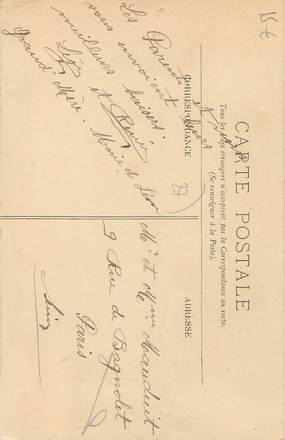 15 €
CARTE POSTALE
Tous les Pays étrangers n'acceptent pas la Correspondance au recto.
(Se renseigner à la Poste).
CORRESPONDANCE
ADRESSE
Les Parents
vous envoient
meilleurs baisers.
et René
Grand'Mère. Marie
27
Mr et Mme Mauduit
9 Rue de Bagnolet
Paris